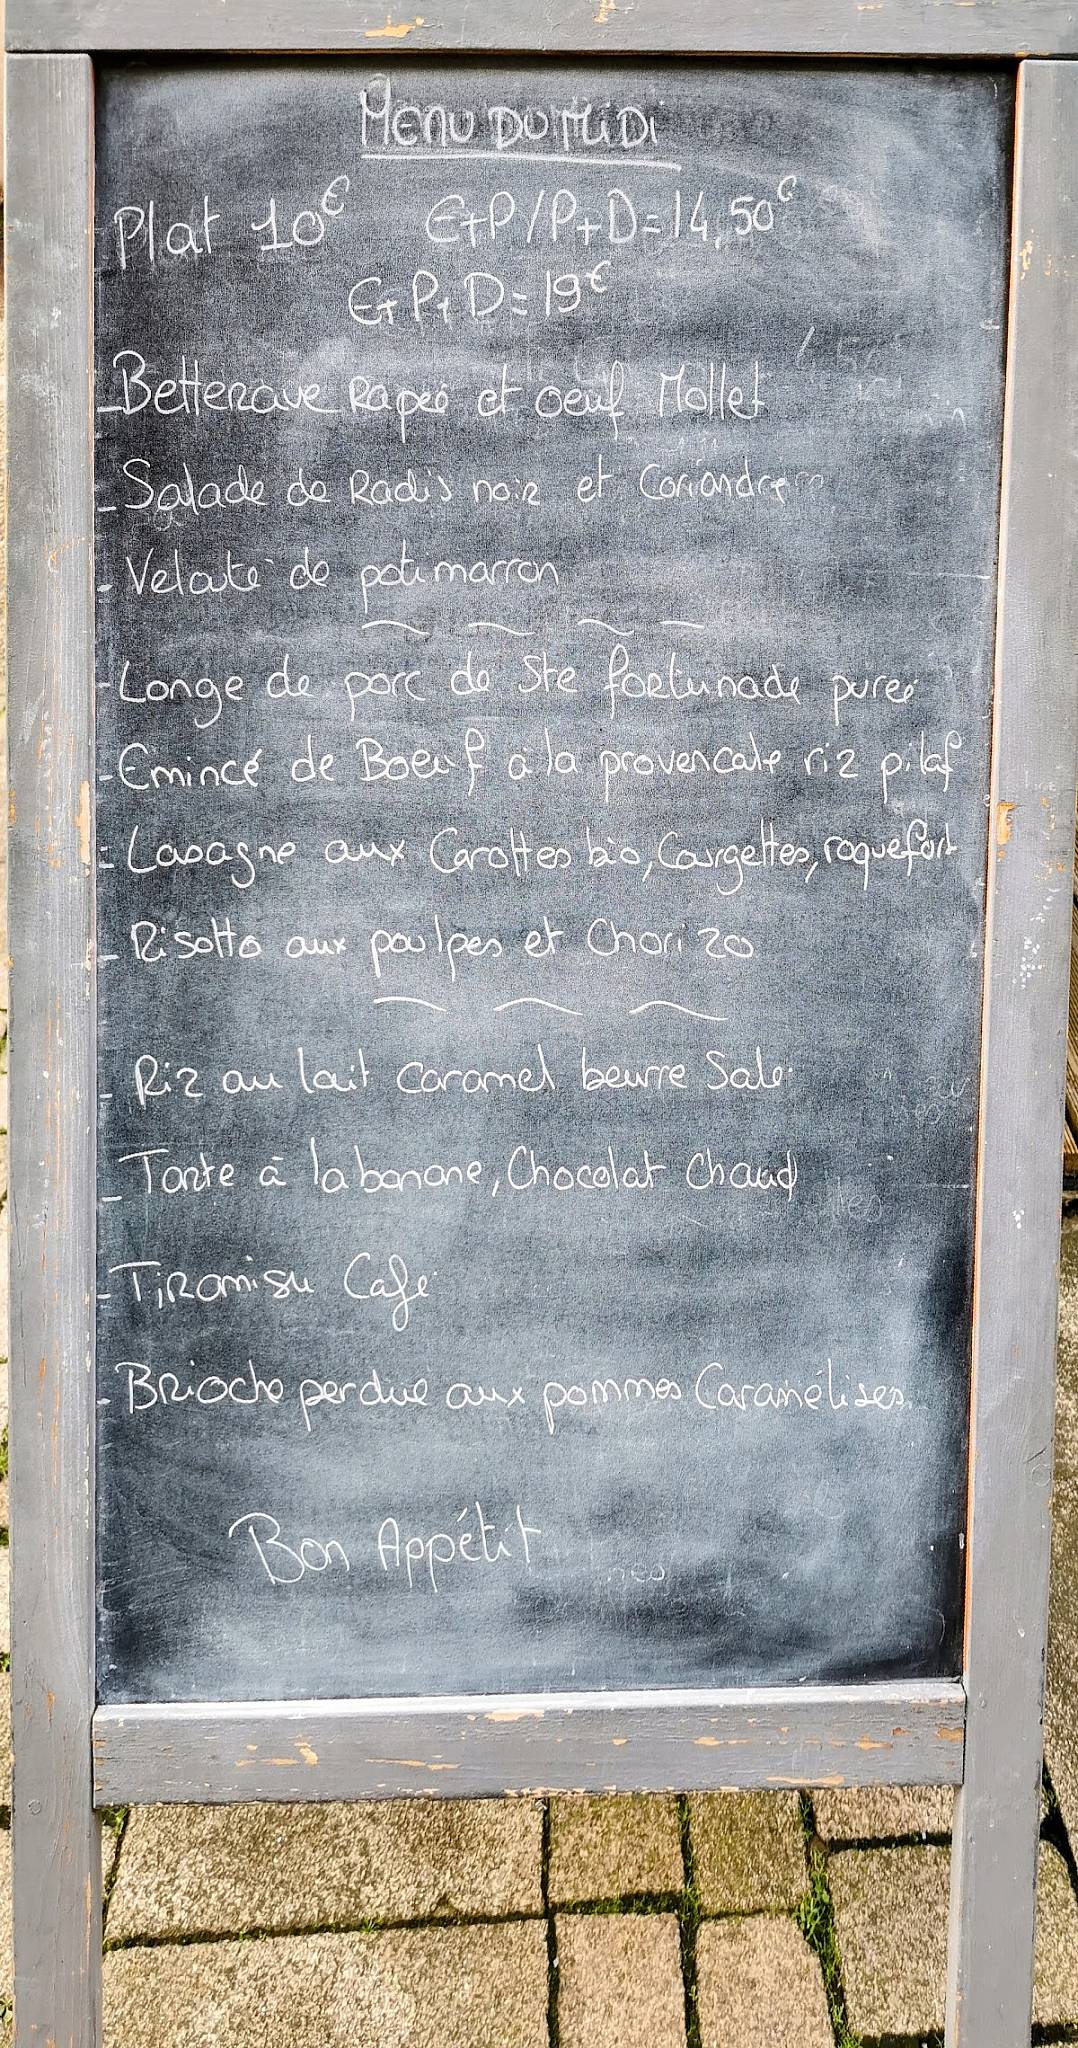 MENU DU MIDI
Plat 10€ E+P/P+D=14,50€
E+P+D=19€
- Betterave Rapée et oeuf Mollet
- Salade de Radis noir et Coriandre
- Velouté de potimarron
- Longe de porc de Ste fortunade purée
- Emincé de Boeuf à la provencale riz pilaf
- Lasagne aux Carottes bio, Courgettes, roquefort
- Risotto aux poulpes et Chorizo
- Riz au lait caramel beurre Salé
- Tarte à la banane, Chocolat Chaud
- Tiramisu Café
- Brioche perdue aux pommes Caramélises
Bon Appétit